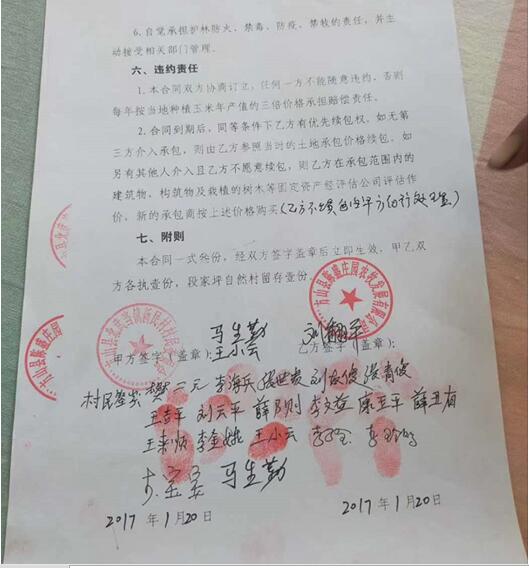 6.自觉承担护林防火、禁毒、防疫、禁牧的责任,并主
动接受相关部门管理。
六、违约责任
1.本合同双方协商订立,任何一方不能随意违约,否则
每年按当地种植玉米年产值的三倍价格承担赔偿责任。
2.合同到期后,同等条件下乙方有优先续包权,如无第
三方介入承包,则由乙方参照当时的土地承包价格续包。如
另有其他人介入且乙方不愿意续包,则乙方在承包范围内的
建筑物、构筑物及栽植的树木等固定资产经评估公司评估作
价,新的承包商按上述价格购买(乙方不续包
七、附则
本合同一式叁份,经双方签字盖章后立即生效,甲乙双
方各执壹份,段家坪自然村留存壹份。
马生勤
王小云
甲方签字(盖章): 乙方签字(盖章):
村民签字 樊二元 李海兵 张世发 刘 俊 张青俊
王吉平 刘云平 薛 则 李文益 康正平 薛丑有
王来炳 李金娥 王小云
马生勤
2017年1月20日 2017年1月20日